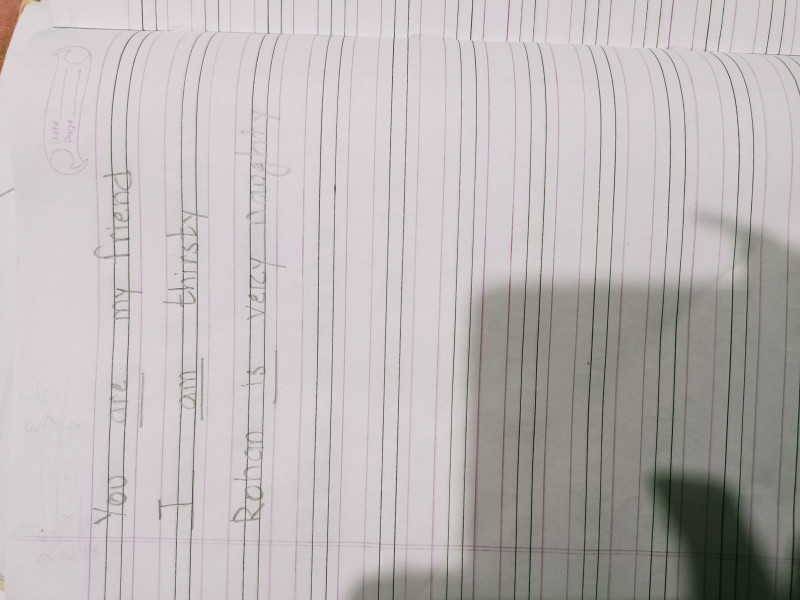 Date
Page
You are my friend
I am thirsty
Rohan is veray naughty